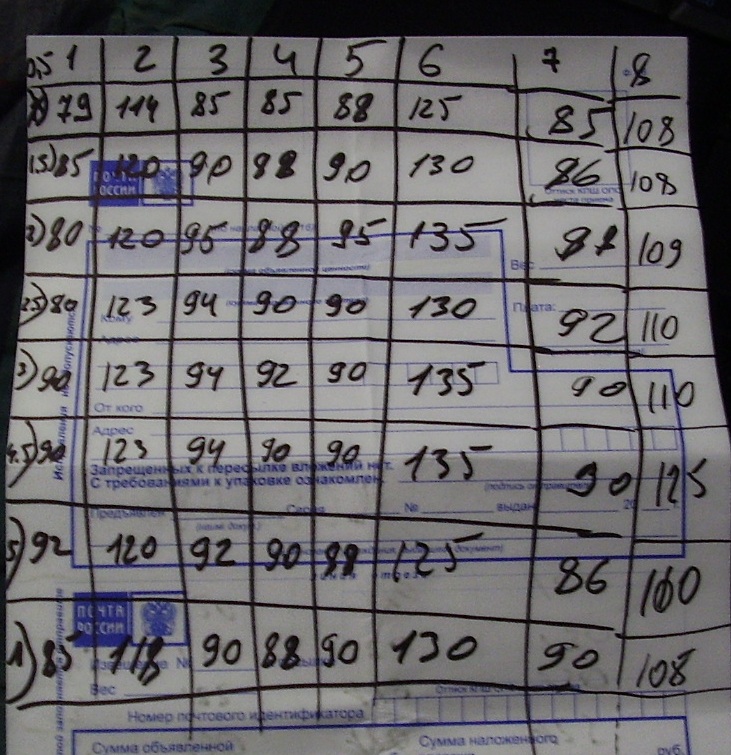 0,5 1 2 3 4 5 6 7 8
79 114 85 85 88 125 85 108
1.5) 85 120 90 88 90 130 86 108
ПОЧТА
РОССИИ
Оттиск КПШ ОПС
места приема
2) 80 120 95 88 95 135 109
Вес
(сумма объявленной ценности)
2.5) 80 123 94 90 90 130 92 110
Кому
Плата:
Адрес
3) 90 123 94 92 90 135 90 110
От кого
Адрес
4.5) 90 123 94 90 90 135 90 125
Запрещенных к пересылке вложений нет.
С требованиями к упаковке ознакомлен.
(подпись отправителя)
Предъявлен Серия № выдан 20
(наим. докум.)
5) 92 120 92 90 88 125 86 100
ПОЧТА
РОССИИ
1) 85 118 90 88 90 130 90 108
Извещение №
Вес
Оттиск КПШ ОПС
Номер почтового идентификатора
Сумма объявленной
Сумма наложенного
руб.